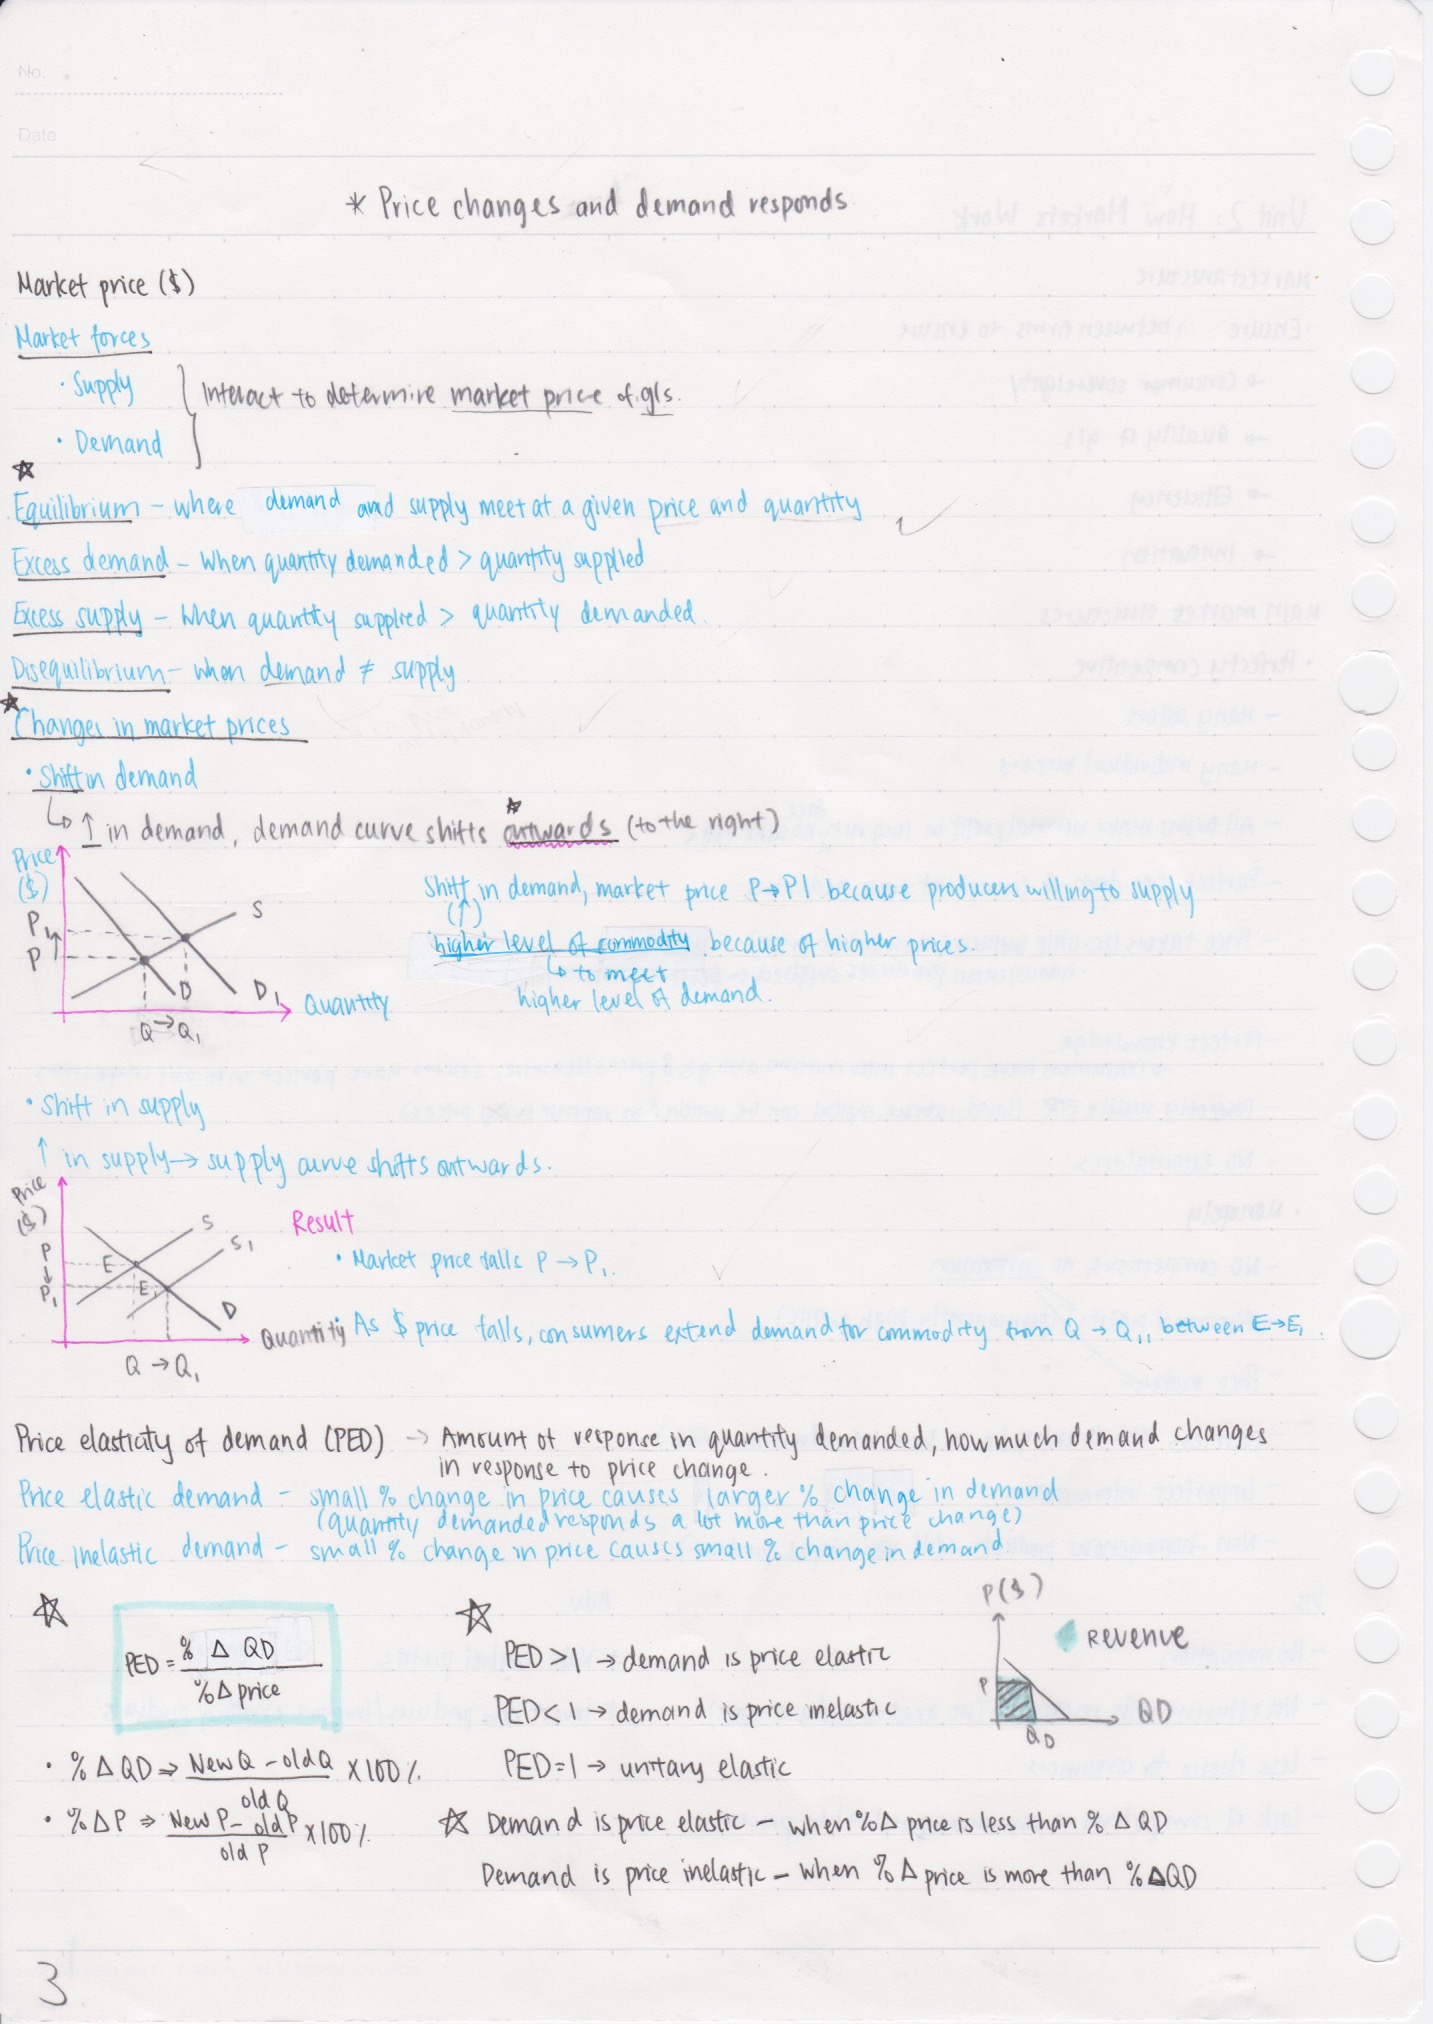 No.
Date
* Price changes and demand responds
Market price ($)
Market forces
· Supply
· Demand
Interact to determine market price of g/s.
Equilibrium – where demand and supply meet at a given price and quantity
Excess demand – When quantity demanded > quantity supplied
Excess supply – When quantity supplied > quantity demanded.
Disequilibrium – when demand ≠ supply
Changes in market prices
· Shift in demand
↳ ↑ in demand, demand curve shifts outwards (to the right)
Price
($)
P₁
P
S
D
D₁
Quantity
Q → Q₁
Shift in demand, market price P→P1 because producers willing to supply
(↑)
higher level of commodity because of higher prices.
↳ to meet
higher level of demand.
· Shift in supply
↑ in supply → supply curve shifts outwards.
Price
($)
P
↓
P₁
S
S₁
E
E₁
D
Quantity
Q → Q₁
Result
· Market price falls P → P₁.
· As $ price falls, consumers extend demand for commodity from Q → Q₁, between E→E₁
Price elasticity of demand (PED) → Amount of response in quantity demanded, how much demand changes
in response to price change.
Price elastic demand – small % change in price causes larger % change in demand
(quantity demanded responds a lot more than price change)
Price inelastic demand – small % change in price causes small % change in demand
PED = % Δ QD
% Δ price
· % Δ QD ⇒ New Q – old Q × 100%
old Q
· % Δ P ⇒ New P – old P × 100%
old P
PED > 1 → demand is price elastic
PED < 1 → demand is price inelastic
PED = 1 → unitary elastic
P($)
Revenue
P
QD
QD
☆ Demand is price elastic – when % Δ price is less than % Δ QD
Demand is price inelastic – when % Δ price is more than % Δ QD
3